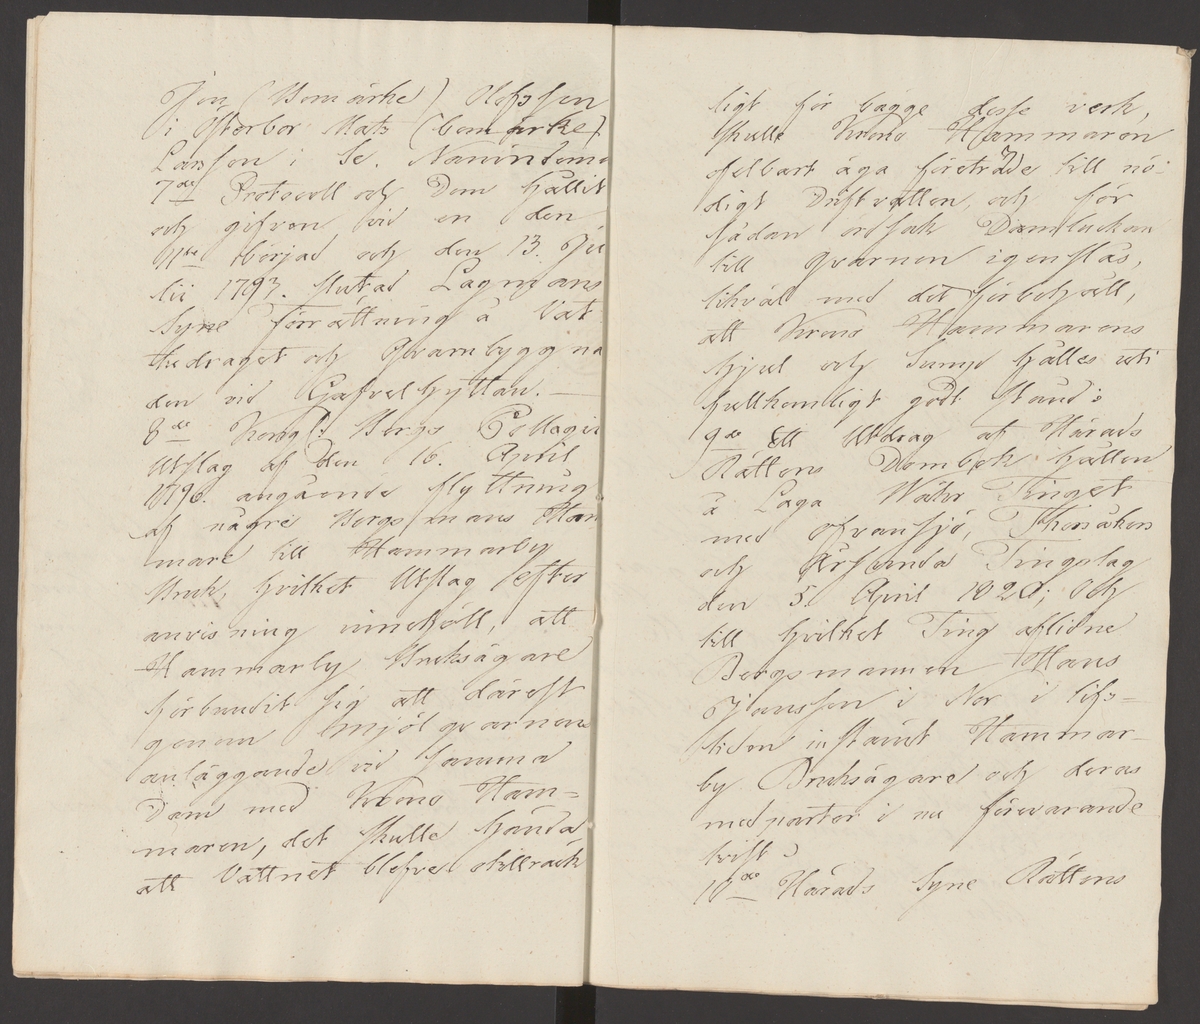 Jon (Bomärke) Olofsson
i Österbor Mats (bomärke)
Larsson i Se. Nanindemo
7de Protocoll och Dom hållit
och gifven vid en den
11te börjad och den 13. Ju
lii 1793. slutad Lagmans
Syne förrättning å Vat
thedraget och Qvarnbyggna
den vid Gafvelhyttan. —
8de Kongl: Bergs Collagii
Utslag af den 16. April
1796. angående flyttning
af någre Bergsmans Ham
mare till Hammarby
Bruk, hvilket Utslag efter
anvisning innehöll, att
Hammarby Bruksägare
förbundit sig att därest
genom Mjölqvarnens
anläggande vid samma
Dam med Krono Ham=
maren, det skulle hända
att Vattnet blefve otillräck
ligt för bägge desse verk,
skulle Krono Hammaren
ofelbart äga företräde till nö:
digt Driftvatten, och för
sådan orsak Damluckan
till Qvarnen igenslås,
likväl med det förbehåll,
att Krono Hammarens
hjul och Sump hålles uti
fullkomligt godt stånd:
9de Ett Utdrag af Härads
Rättens Dombok hållen
å Laga Wåhr Tinget
med Ofvansjö, Thorsåkers
och Årsunda Tingslag
den 5. April 1820; och
till hvilket Ting aflidne
Bergsmannen Hans
Jansson i Nor i lifs=
tiden instämt Hammar-
by Bruksägare och deras
medparter i nu förevarande
tvist;
10de Härads Syne Rättens